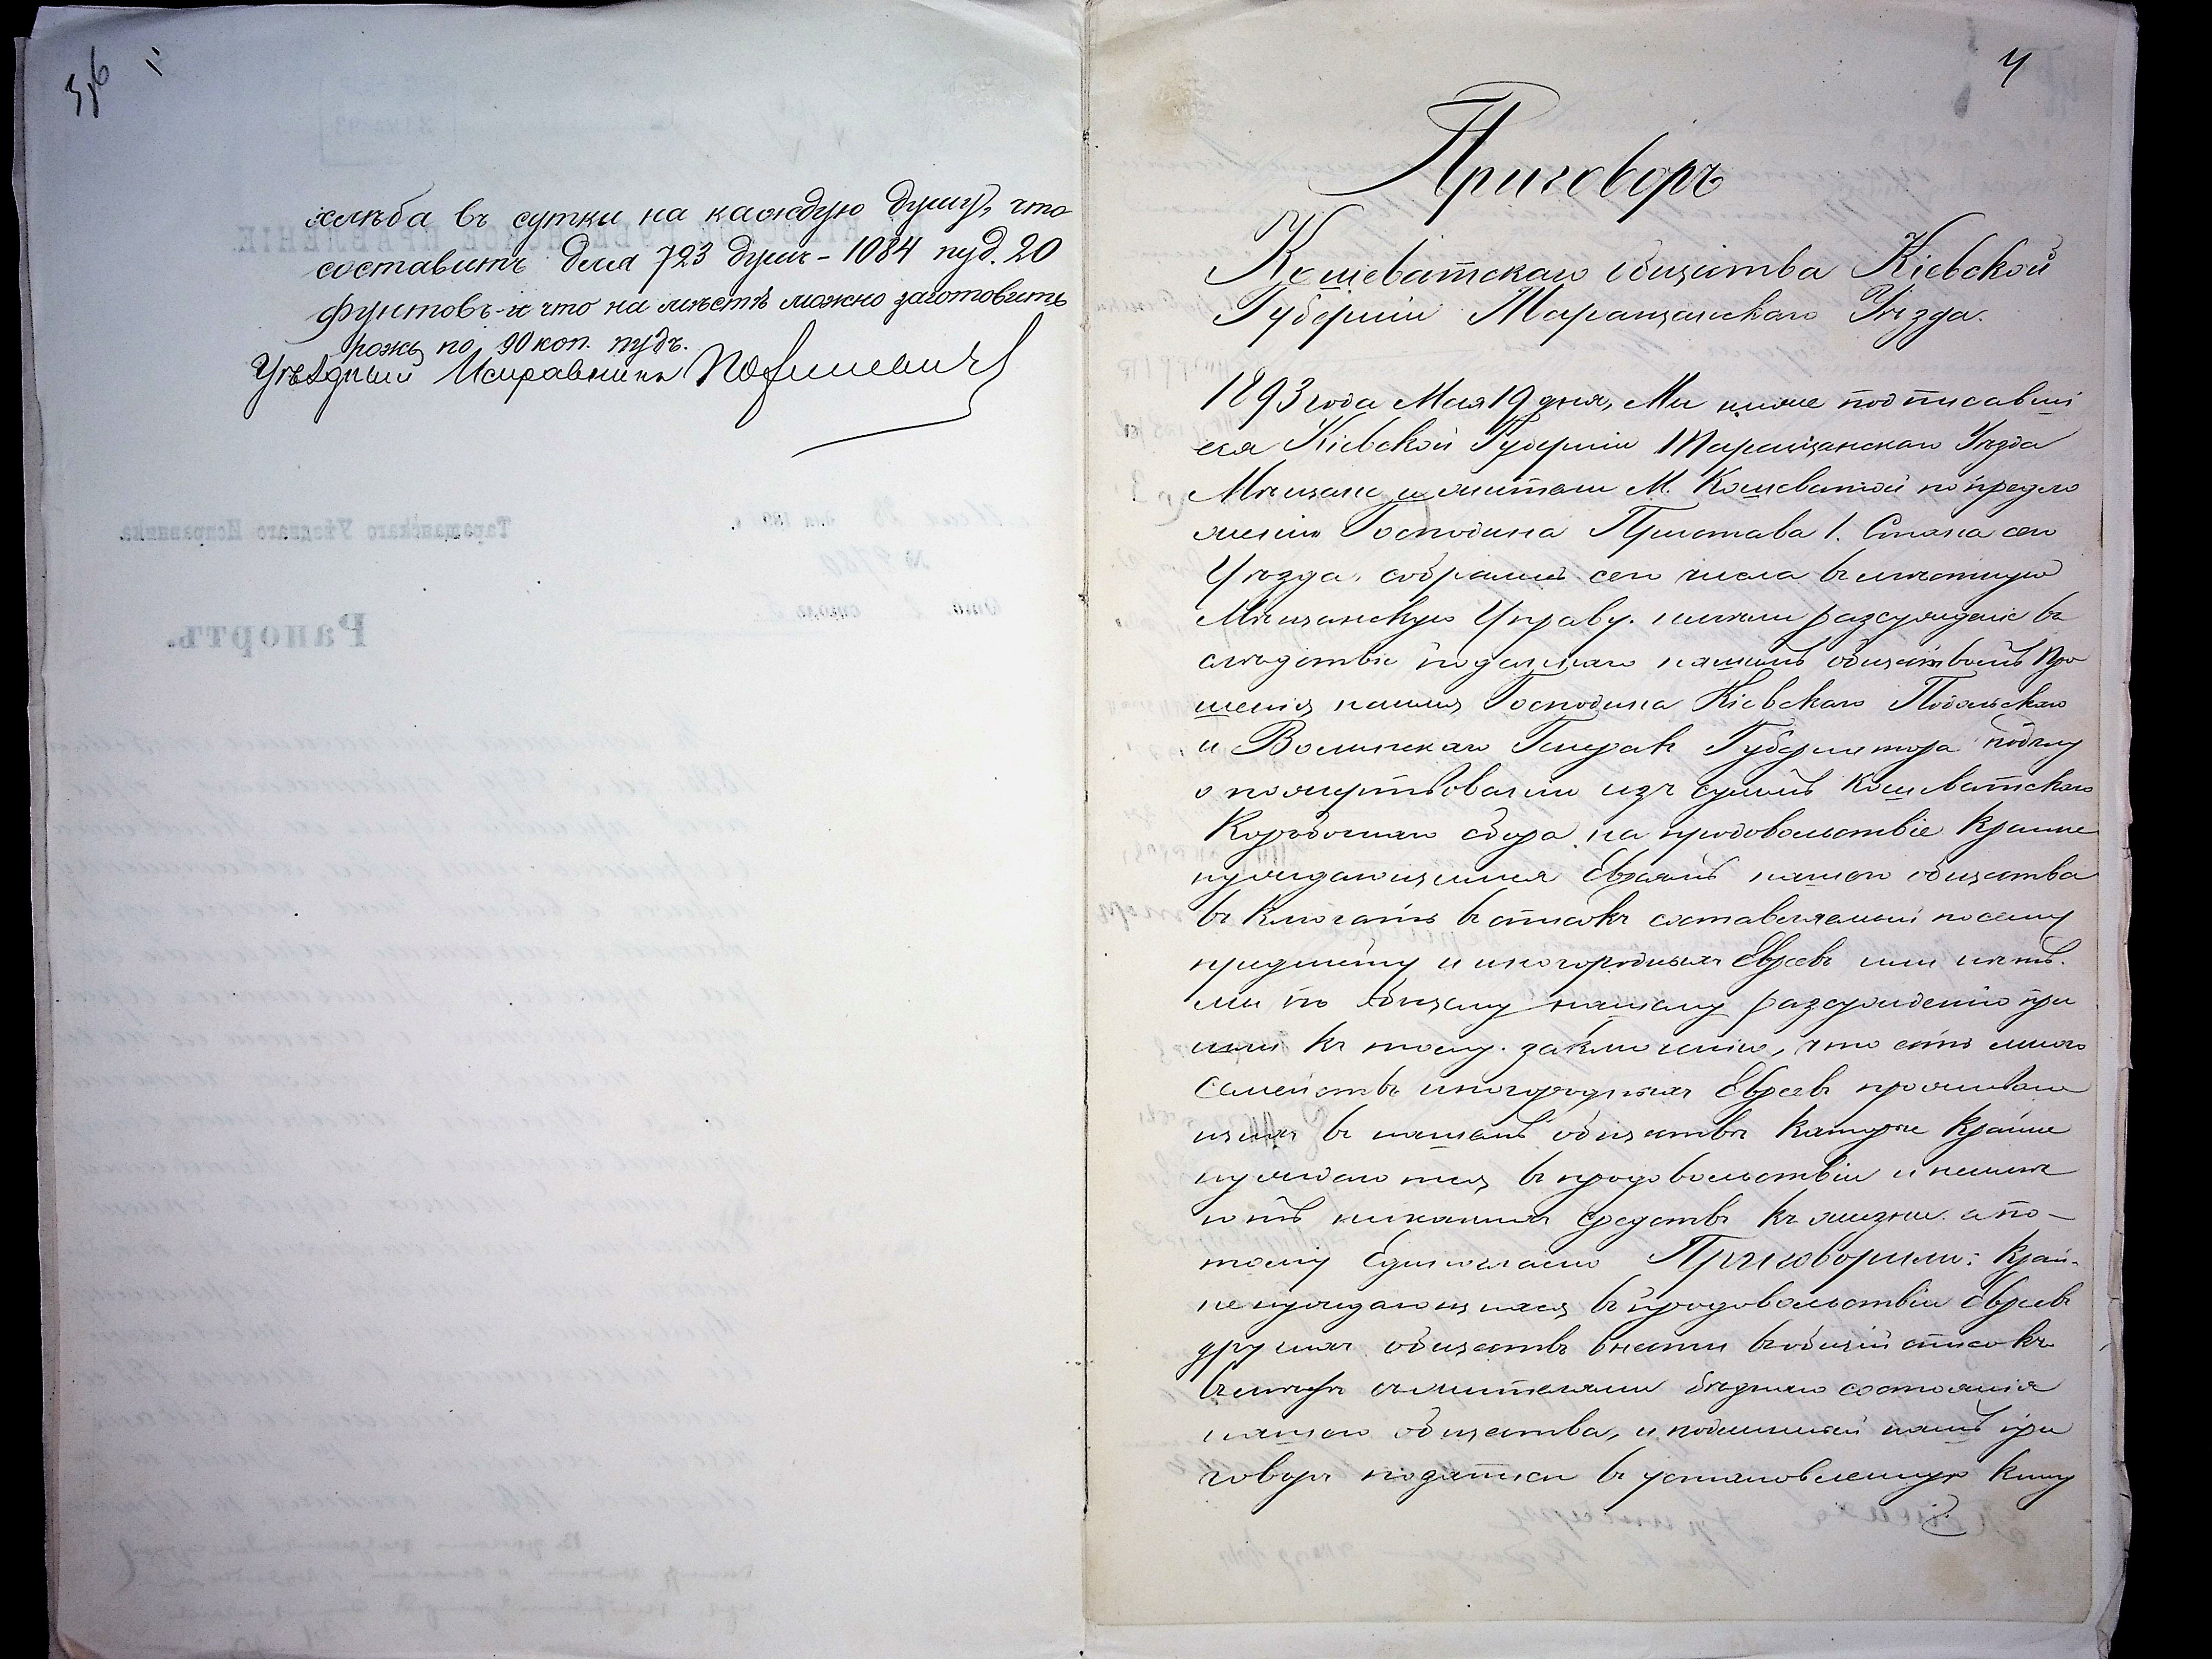 хлѣба въ сутки на каждую душу, что
составитъ для 723 душъ - 1084 пуд. 20
фунтовъ - и что на мѣстѣ можно заготовить
рожь по 90 коп. пудъ.
Уѣздный Исправникъ
4
Приговоръ
Кошеватскаго общества Кіевской
Губерніи Таращанскаго Уѣзда.
1893 года Мая 19 дня, Мы ниже подписавші
еся Кіевской Губерніи Таращанскаго Уѣзда
Мѣщане и жители М. Кошеватой по предло
женію Господина Пристава 1. Стана сего
Уѣзда, собрались сего числа въ мѣстную
Мѣщанскую Управу. имѣли разсужденіе въ
слѣдствіе поданнаго нашимъ обществомъ Про
шенія нашимъ Господина Кіевскаго Подольскаго
и Волынскаго Генералъ Губернатора
о пожертвованіи изъ суммъ Кошеватскаго
Коробочнаго сбора на продовольствіе крайне
нуждающимся Евреямъ нашего общества
включать въ списокъ составляемый по сему
предмету и иногородныхъ Евреевъ или нѣтъ.
мы по общему нашему разсужденію при
шли къ тому заключенію, что есть много
Семействъ иногородныхъ Евреевъ проживаю
щихъ въ нашемъ обществѣ которые крайне
нуждаются въ продовольствіи и неимѣ
ютъ никакихъ средствъ къ жизни а по-
тому Единогласно Приговорили: край-
не нуждающихся въ продовольствіи евреевъ
другихъ обществъ внести въ общій списокъ
вмѣстѣ съ жителями бѣднаго состоянія
нашего общества, и подлинный нашъ при
говоръ въ установленную книгу